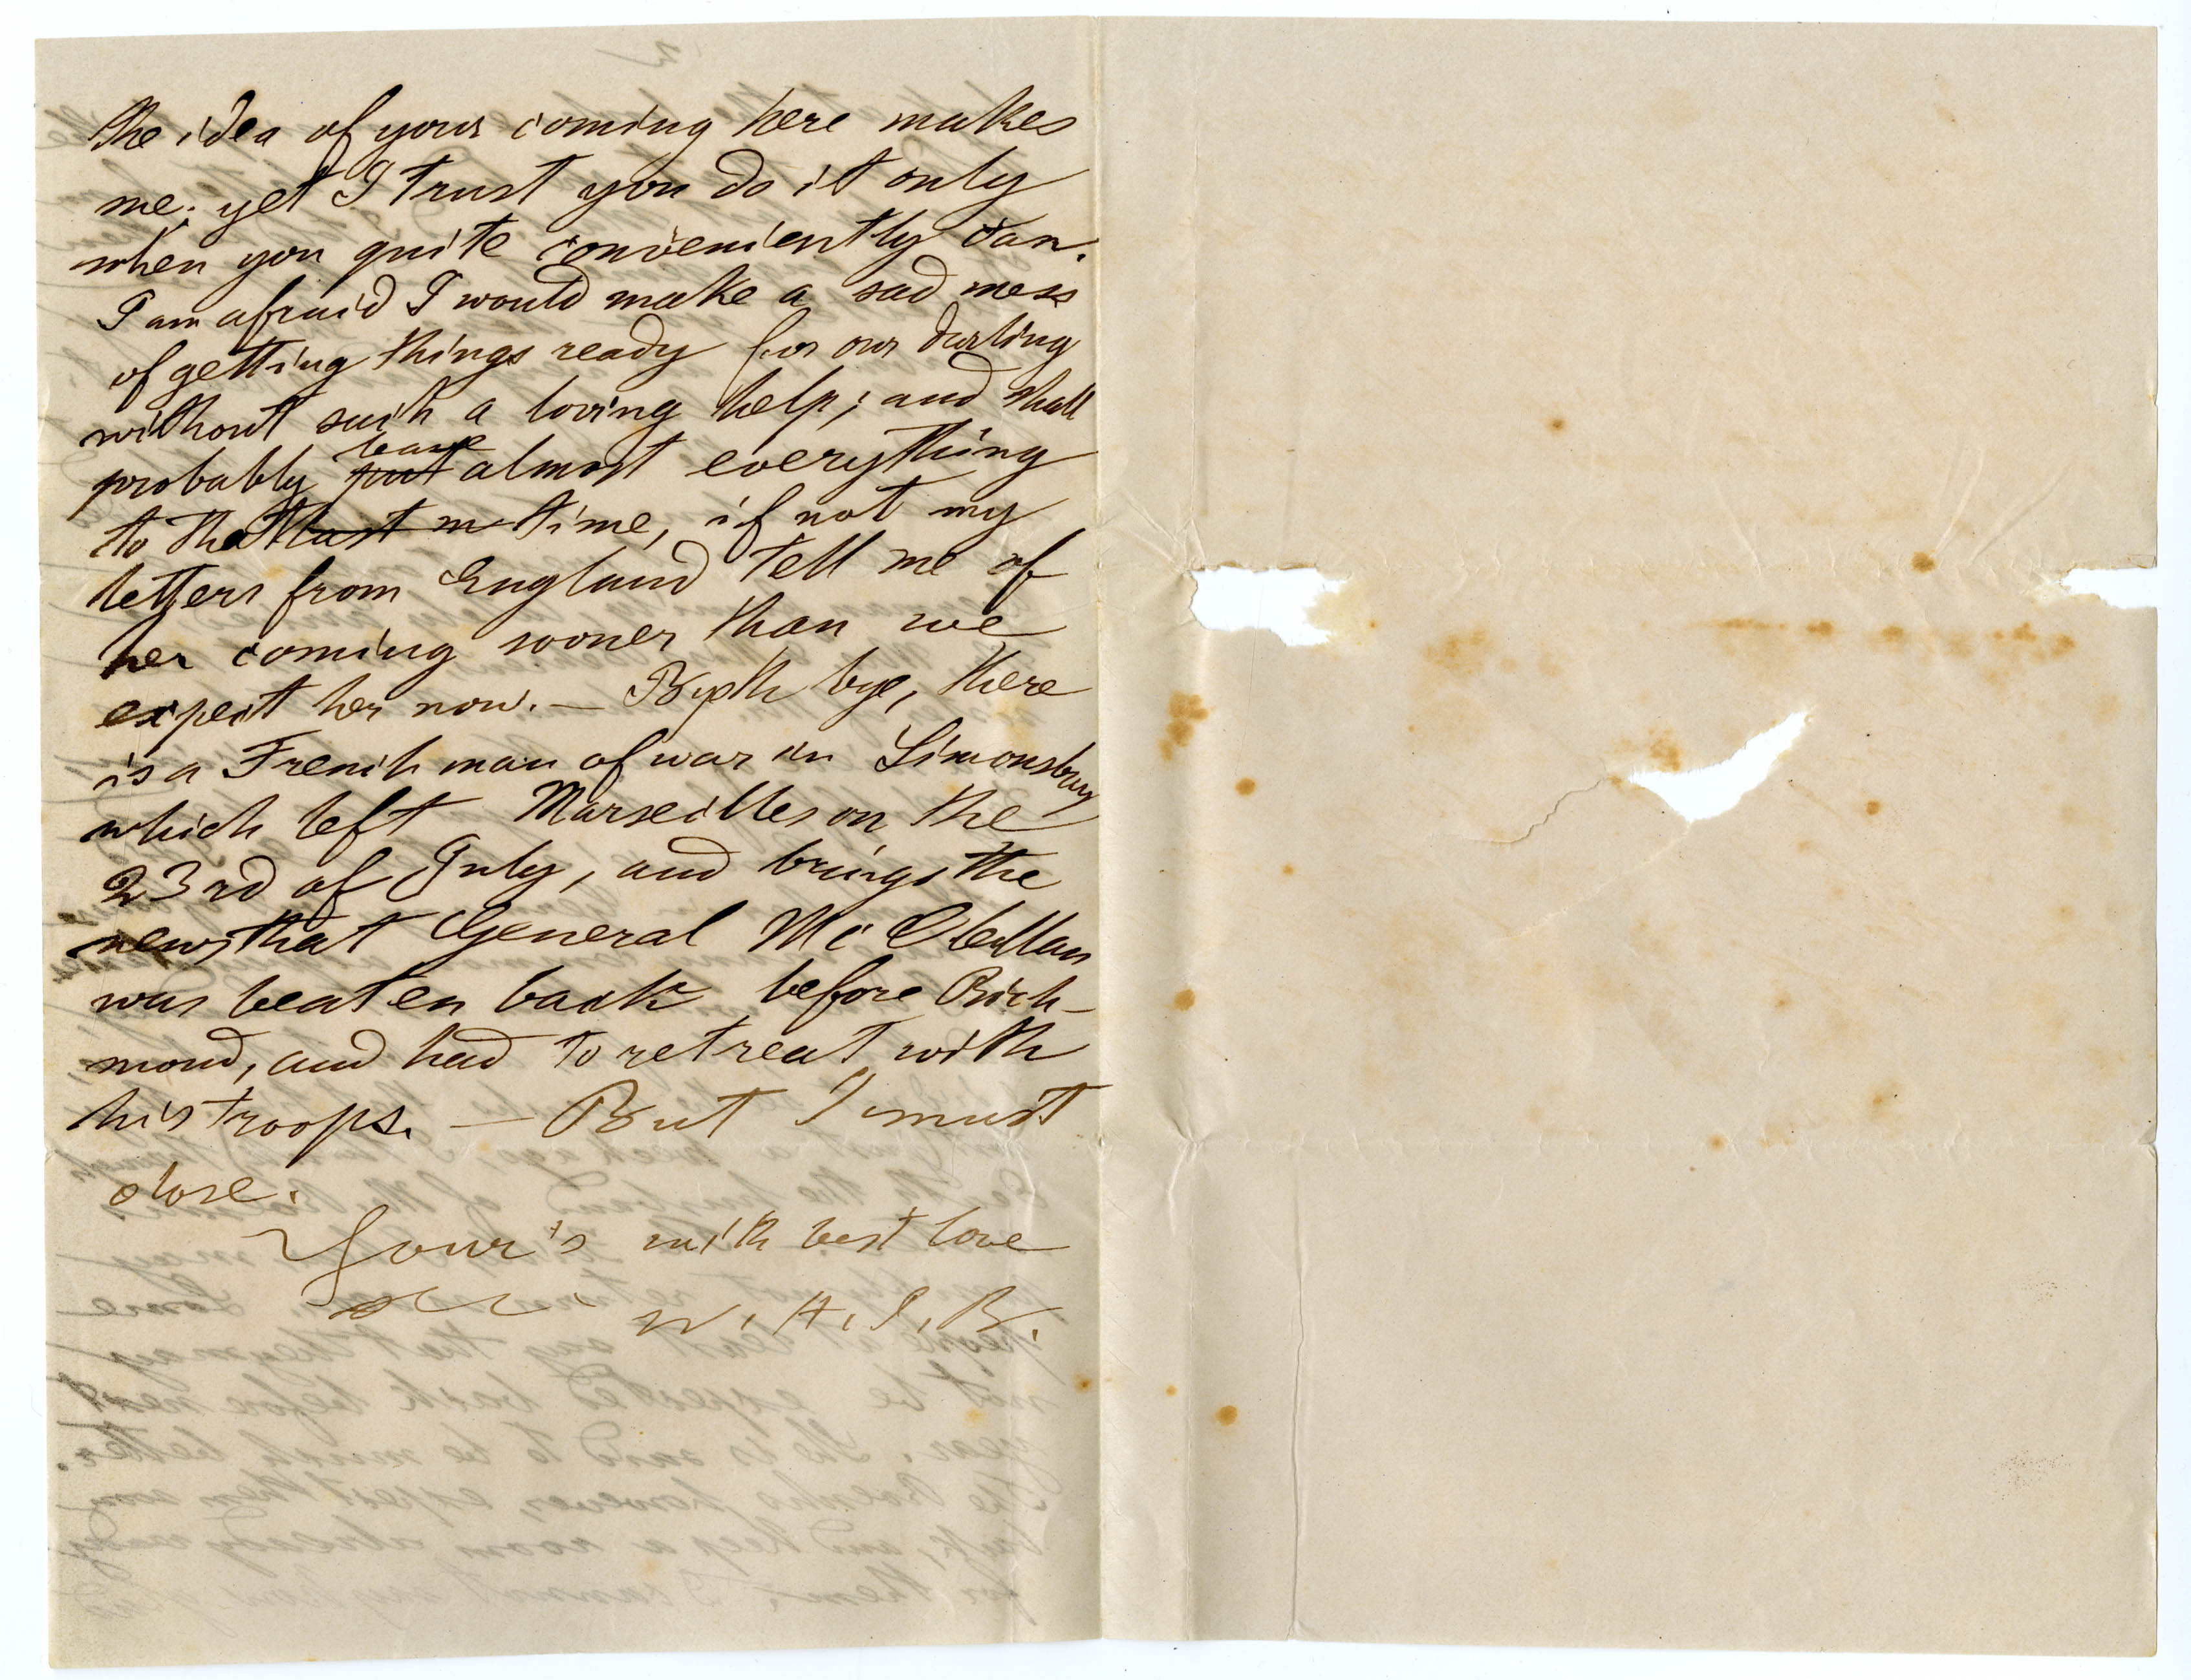 the idea of your coming here makes
me; yet I trust you do it only
when you quite conveniently can.
I am afraid I would make a sad mess
of getting things ready for our darling
without such a loving help; and shall
probably put leave almost everything
to that time, if not my
letters from England tell me of
her coming sooner than we
expect her now. — By th bye, there
is a French man of war in Simonsbay
which left Marseilles on the
23rd of July, and brings the
news that General Mc Clellan
was beaten back before Rich-
mond, and had to retreat with
his troops. — But I must
close.
Your's with best love
W. H. I. B.